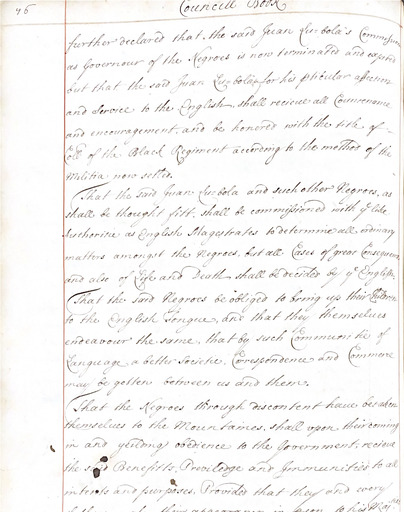 76
Councill Book
further declared that, the said Juan Luzbola's Commission
as Governour of the Negroes is now terminated and expired
but that the said Juan Luzbola for his pticular affeccone
and Service to the English, shall recieve all Countenance
and encouragement, and be honored with the title of
Coll of the Black Regiment according to the method of the
Militia now setled.
That the said Juan Luzbola and such other Negroes, as
shall be thought fitt, shall be commissioned with ye like
Authoritie as English Magestrates to determine all ordinary
matters amongst the Negroes, but all Cases of great Consequence
and also of Life and Death shall be decided by ye English
That the said Negroes be obliged to bring up their Children
to the English Tongue, and that they themselves
endeavour the same, that by such Communitie of
Language a better Societie, Corespondence and Commerce
may be gotten between us and them.
That the Negroes through discontent have betaken
themselves to the Mountaines, shall upon their coming
in and yeilding obedience to the Government, recieve
the said Benefitts, Priviledge and Immunities to all
intents and purposes. Provided that they and every
of them make their appearance in person to his Majties